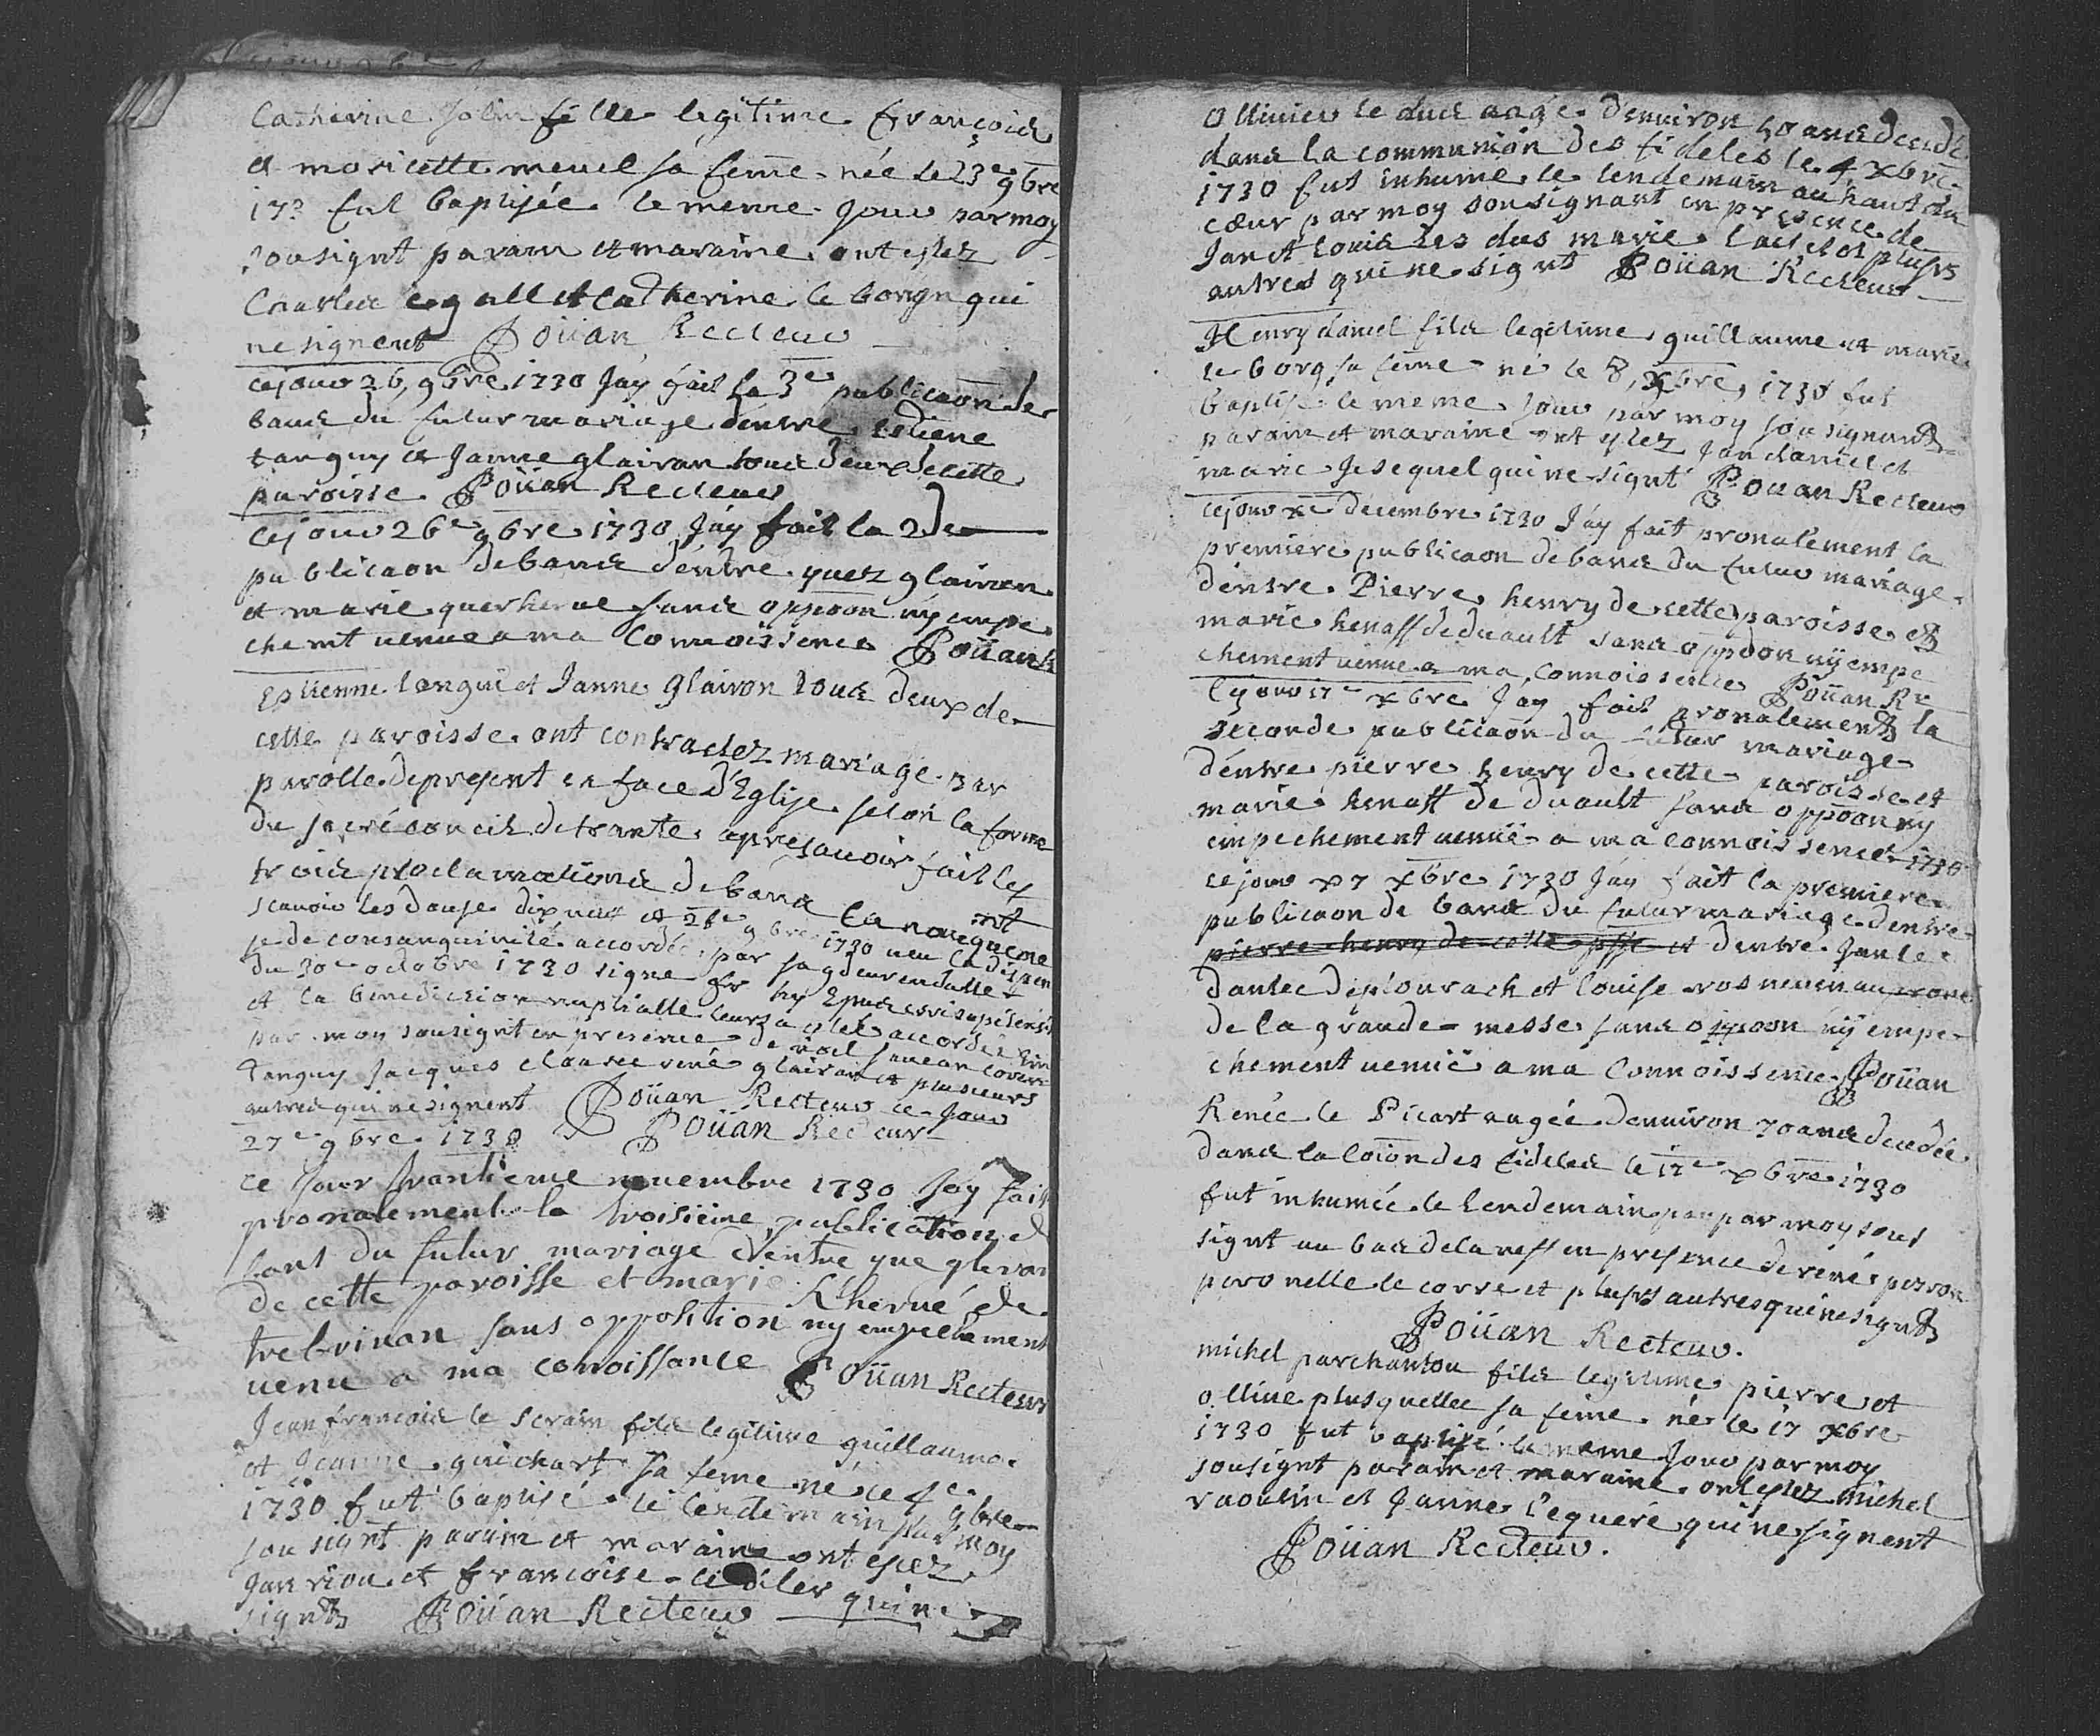 Catherine fille legitime francois
et moricette menel sa feme née le 23e 9bre
173 fut baptisée le meme jour par moy
sousignt parain et maraine ont estez
Charles le gall et Catherine le borgn qui
ne signent Poüan Recteur
ce jour 26, 9bre 1730 Jáy fait la 3e publicaon des
bans du futur mariage dentre estiene
tanguy et Janne glairan tous deux de cette
paroisse Poüan Recteur
Ce jour 26e 9bre 1730 Jáy fait la 2de
publicaon de bans déntre yuez glairan
et marie querherue sans oppoon ny empe
chemt venue a ma Connoissence Poüan R
Estienne tangui et Janne glairon tous deux de
cette paroisse ont contractez mariage par
parolle de present en face d'Eglise selon la forme
du sacré concil de trante apres auoir fait les
trois proclamations de bans
scauoir les douse dix neuf et 26e 9bre 1730 veu la dispen
se de consanguinité accordée par
du 30e octobre 1730 signe
et la benediction nuptialle leurs a esté accordée
par moy sousignt en presence de
tanguy Jacques rené glairan et plusieurs
autres qui ne signent Poüan Recteur ce jour
27e 9bre 1730 Poüan Recteur
ce Jour trantieme nouembre 1730 Jay fait
pronalement la troisieme publication d
bans du futur mariage d'entre yue glevan
de cette paroisse et marie K/herué de
trebrivan sans opposition ny empechement
venu a ma conoissance Poüan Recteur
Jean francois le scrain fils legitime guillaume
et Jeanne guichart sa feme né le 4e 9bre
1730 fut baptisé le lendemain par moy
sousignt parain et maraine ont estez
Jan riou et francoise qui ne
signt Poüan Recteur
Ollivier le duc aagé denuiron 50 ans decedé
dans la communion des fideles le 4 xbre
1730 fut inhumé le lendemain au haut du
cœur par moy sousignant en presence de
Jan et louis les dus marie et plusrs
autres qui ne signt Poüan Recteur
Henry daniel fils legitime guillaume et marie
le borg sa feme né le 8, xbre, 1730 fut
baptisé le meme jour par moy sousignant
parain et maraine ont estez Jan daniel et
marie Jesequel qui ne signt Poüan Recteur
ce jour xe decembre 1730 Jáy fait pronalement la
premiere publicaon de bans du futur mariage
déntre Pierre henry de cette paroisse et
marie henaff de duault sans oppoon ny empe
chement venue a ma connoissence Poüan Rr
Ce jour 17e xbre Jay fait pronalement la
seconde publicaon du futur mariage
déntre pierre henry de cette paroisse et
marie henaff de duault sans oppoon ny
empechement venüe a ma connoissence 1730
ce jour x7 xbre 1730 Jáy fait la premiere
publicaon de bans du futur mariage dentre
pierre henry de cette psse et dentre Jan le
dantec de plourach et louise rosneuen au prone
de la grande messe sans oppoon ny empe
chement venüe a ma Connoissence Poüan
Renée le Picart aagée denuiron 70 ans decedée
dans la coiōn des fideles le 17e xbre 1730
fut inhumée le lendemain par moy sous
signt au bas de la neff en presence de rené perron
peronelle le corre et plusrs autres qui ne signt
Poüan Recteur.
michel parchantou fils legitime pierre et
olline plusquellec sa feme né le 17 xbre
1730 fut baptisé le meme jour par moy
sousignt parain et maraine ont estez michel
raoulin et Janne l'equeré qui ne signent
Poüan Recteur.